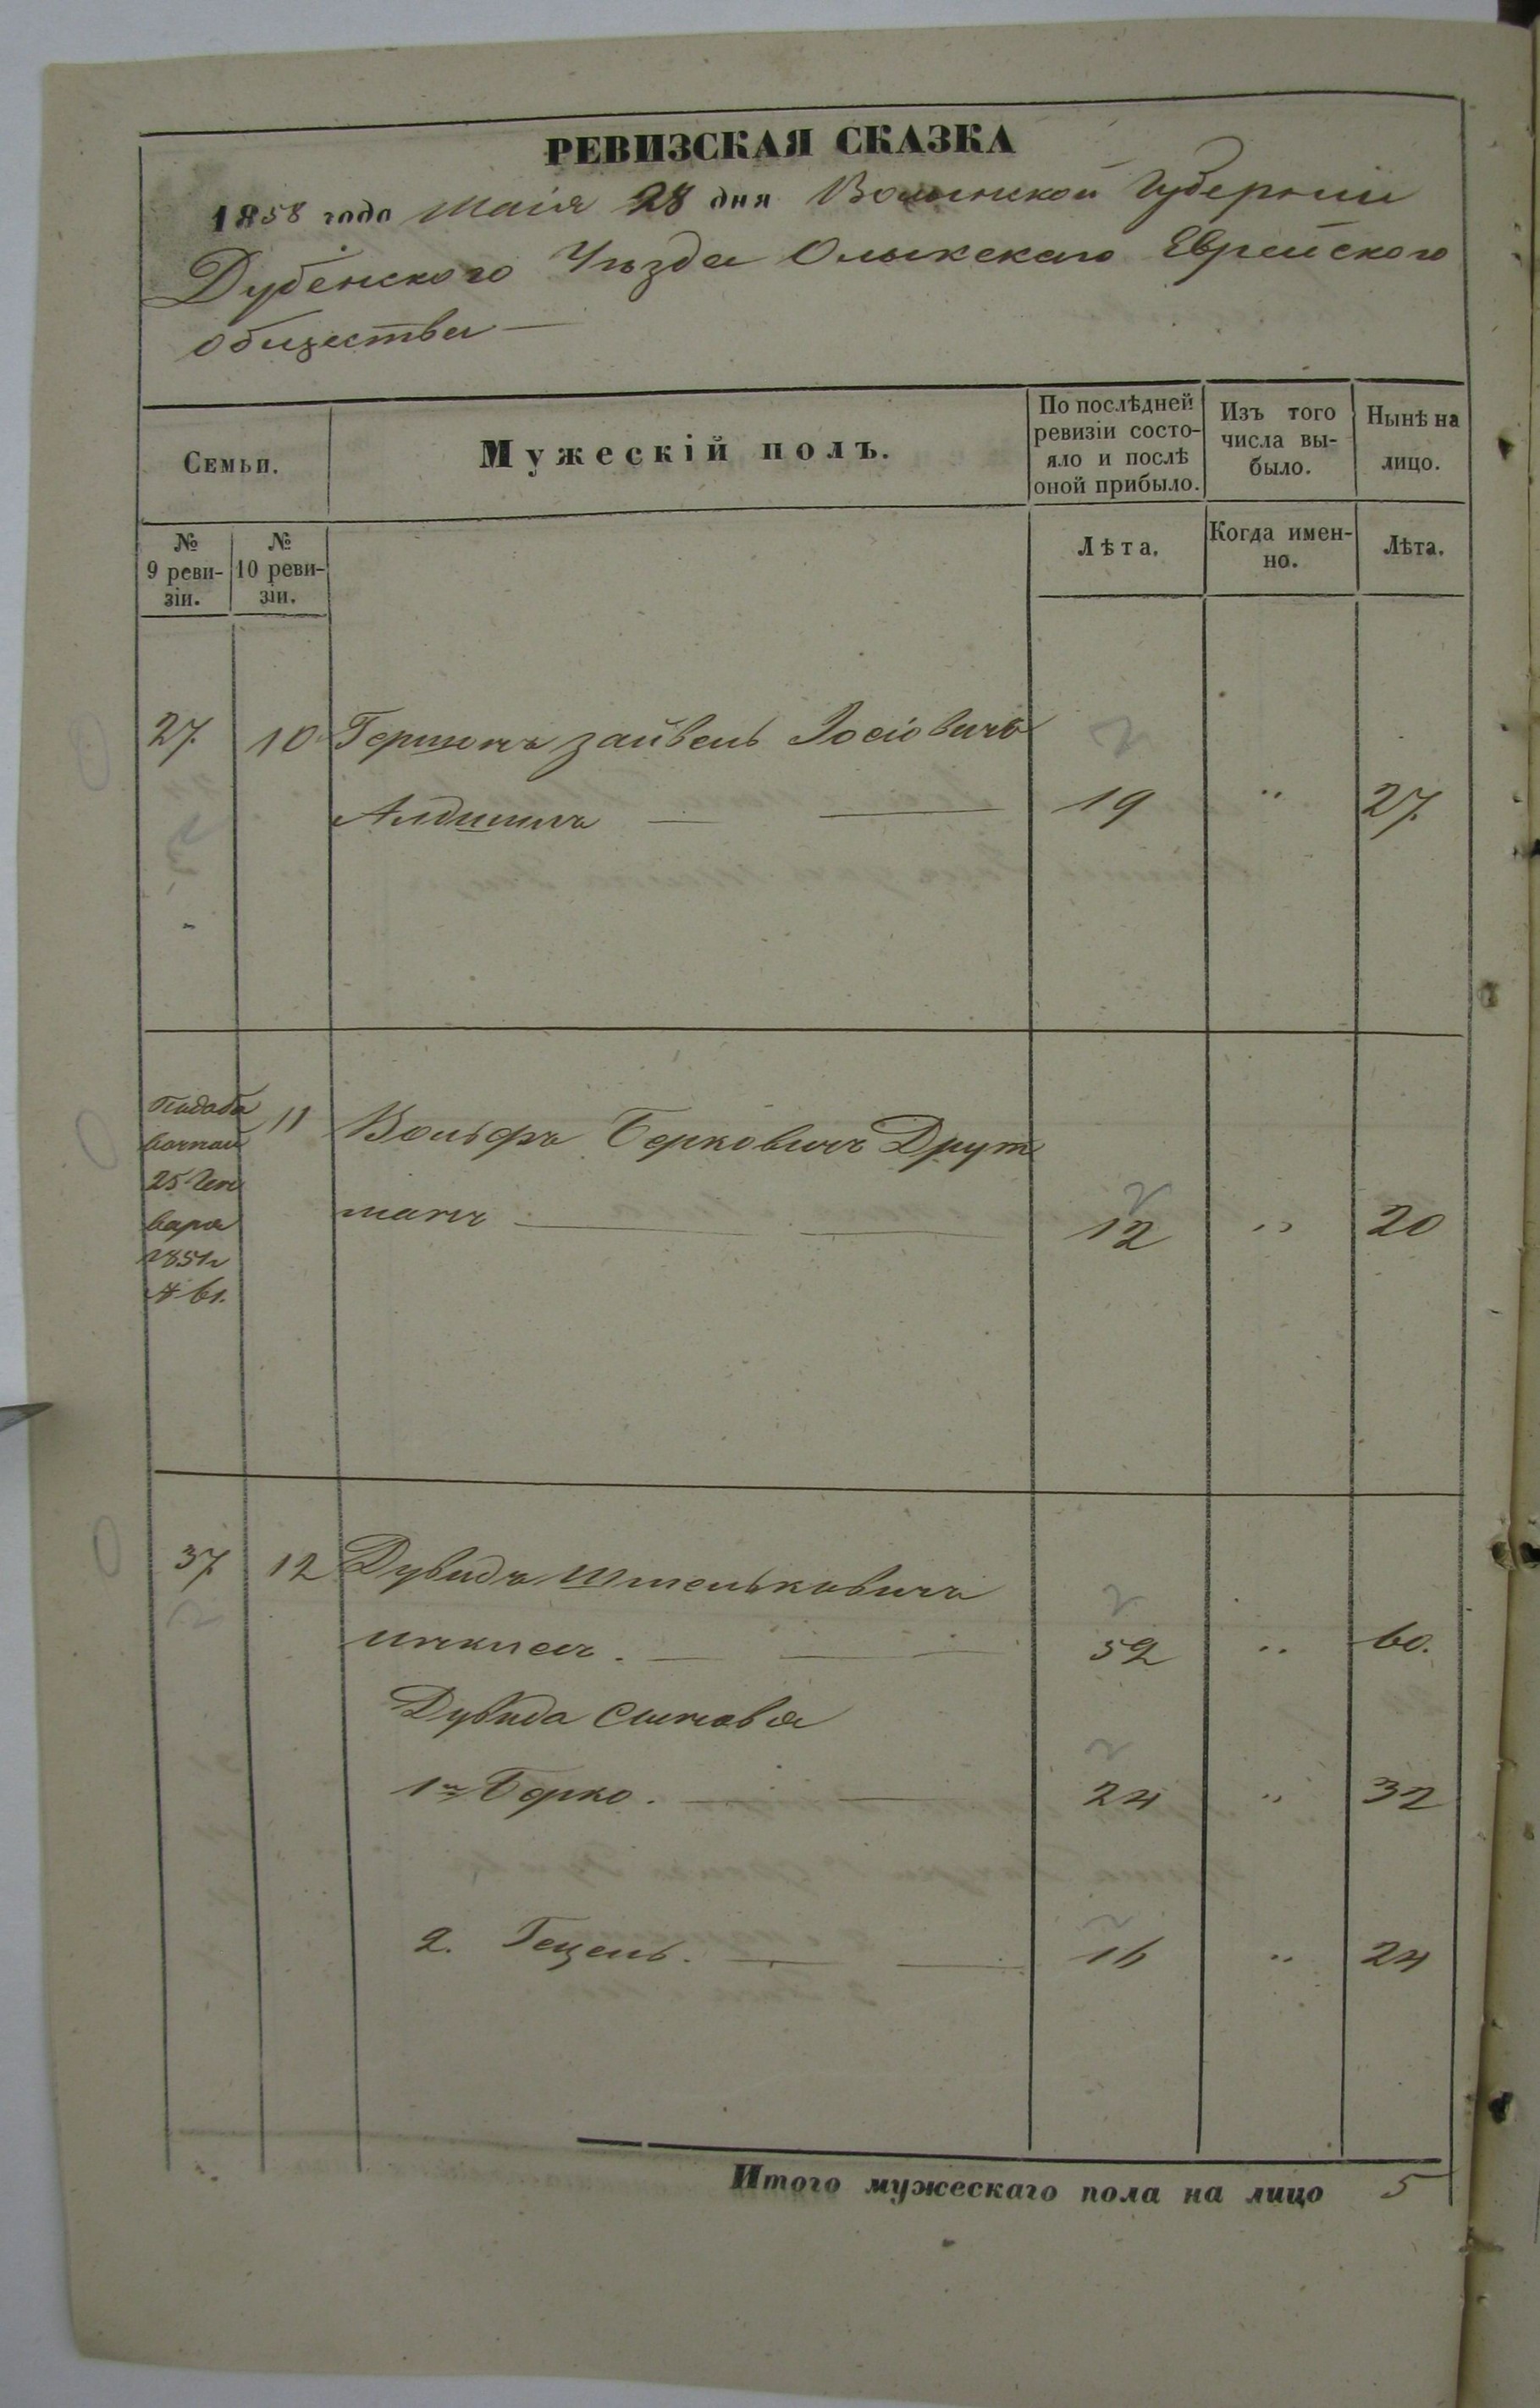 РЕВИЗСКАЯ СКАЗКА
1858 года маія 28 дня Волынской Губерніи
Дубенского Уѣзда Олыкскаго Еврейского
общества —
Семьи.
Мужескій полъ.
По послѣдней ревизіи состояло и послѣ оной прибыло.
Изъ того числа выбыло.
Нынѣ на лицо.
№ 9 ревизіи.
№ 10 ревизіи.
Лѣта.
Когда именно.
Лѣта.
27. 10 Гершонъ Зайвель Іосіовичъ
19 " 27.
11 Вольфъ Берковичъ Друт
манъ 12 " 20
25 Генваря
1851
37. 12 Дувидъ Шмельковичъ
52 " 60.
Дувида сыновья
1й Берко. 24 " 32
2. Гецель. 16 " 24
Итого мужескаго пола на лицо 5